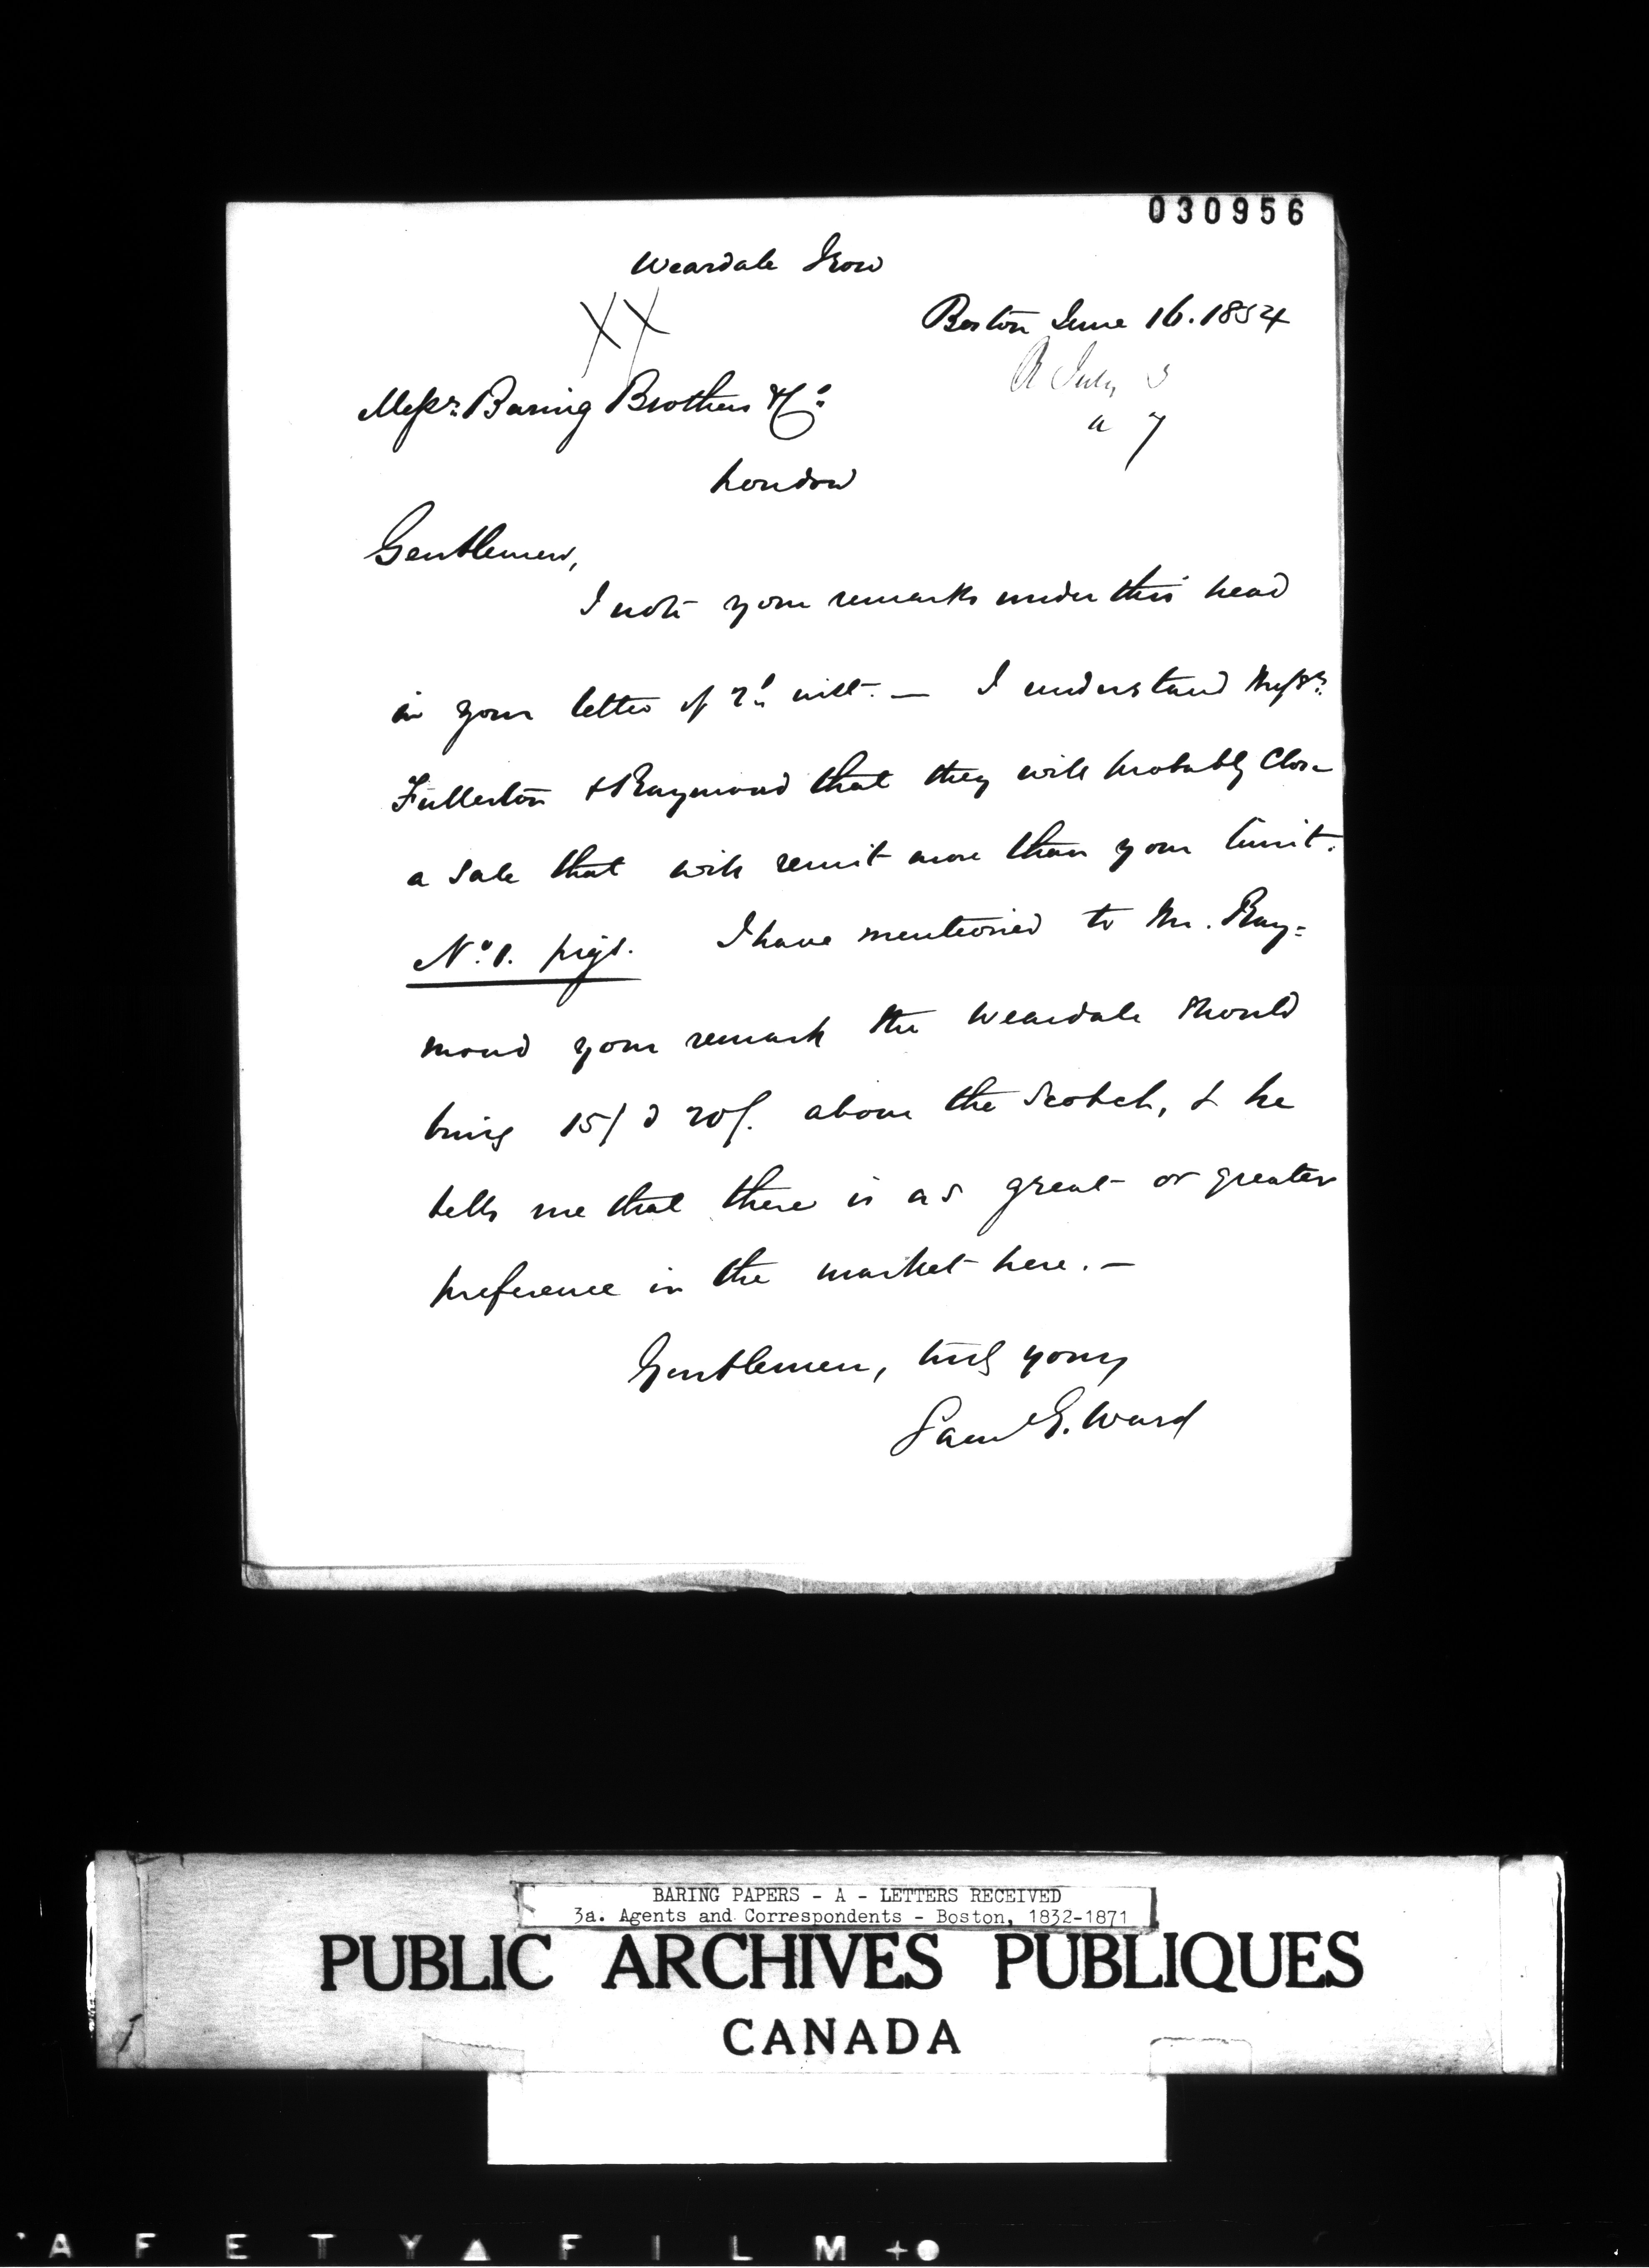 030956
Weardale Iron
Boston June 16. 1854
R July 3
a 7
Messrs. Baring Brothers & Co
London
Gentlemen,
I note your remarks under this head
in your letter of 2d inst. — I understand Messrs.
Fullerton & Raymond that they will probably close
a sale that will remit more than your limit.
No. 1. pigs. I have mentioned to Mr. Ray=
mond your remark the Weardale should
bring 15/ @ 20/. above the Scotch, & he
tells me that there is as great or greater
preference in the market here. —
Gentlemen, truly yours
Saml G. Ward
BARING PAPERS - A - LETTERS RECEIVED
3a. Agents and Correspondents - Boston, 1832-1871
PUBLIC ARCHIVES PUBLIQUES
CANADA
AFETY FILM